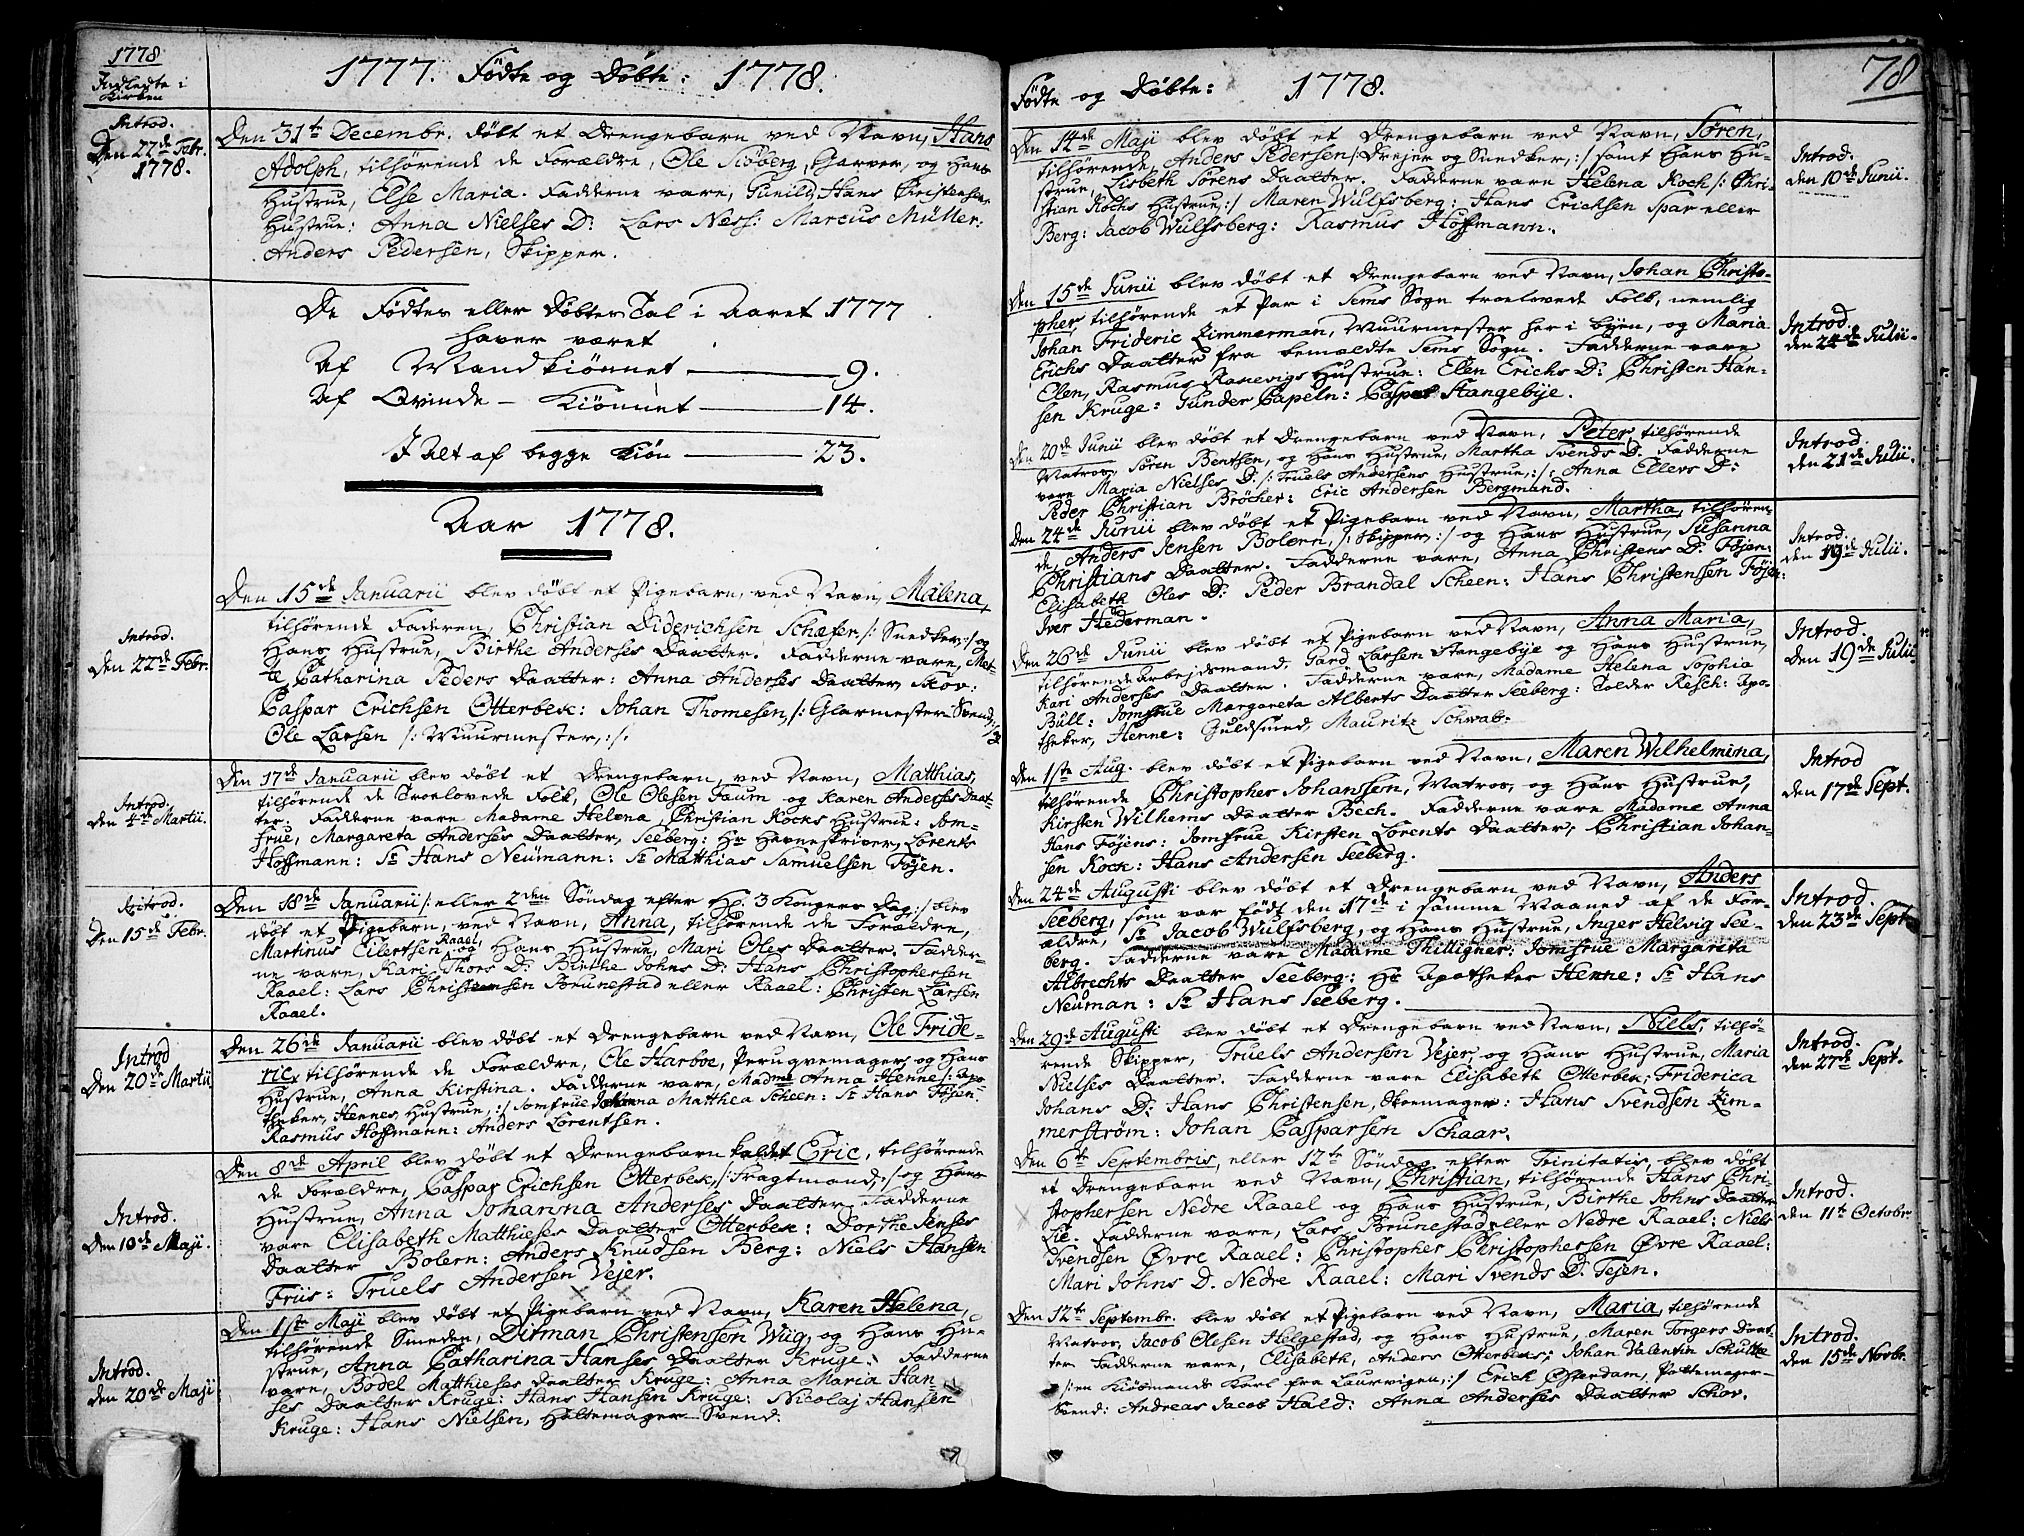 1778
Indledte i
Kirken
1777. Födte og Döbte: 1778.
Introd.
Den 27de Febr.
1778.
Den 31te Decembr. döbt et Drengebarn ved Navn, Hans
Adolph, tilhörende de Forældre, Ole Siöberg, Garver, og Hans
Hustrue, Else Maria. Fadderne vare, Gunild, Hans Christensens
Hustrue: Anna Nielses D: Lars Ness: Marcus Müller:
Anders Pedersen, Skipper.
De Födtes eller Döbtes Tal i Aaret 1777
haver været
Af Mandkiönnet — 9.
Af Qvinde-Kiönnet — 14.
I Alt af begge Kiön — 23.
Aar 1778.
Introd.
Den 22de Febr.
Den 15de Januarii blev döbt et Pigebarn, ved Navn, Malena,
tilhörende Faderen, Christian Diderichsen Schæfer /: Snedker :/ og
Hans Hustrue, Birthe Anderses Daatter. Fadderne vare, Met-
te Catharina Peders Daatter: Anna Anderses Daatter, Skov:
Caspar Erichsen Otterbek: Johan Thomesen, /: Glarmester-Svend, :/
Ole Larsen /: Muurmester, :/:
Introd.
Den 4de Martii.
Den 17de Januarii blev döbt et Drengebarn, ved Navn, Matthias,
tilhörende de Troelovede Folk, Ole Olesen Faum og Karen Anderses Daat-
ter. Fadderne vare Madame Helena, Christian Kocks Hustrue: Jom-
frue, Margareta Anderses Daatter, Seeberg: Hr Havneskriver, Lorents
Hoffmann: Sr Hans Neumann: Sr Matthias Samuelsen Föjen.
Introd.
Den 15de Febr.
Den 18de Januarii /: eller 2den Söndag efter H. 3 Kongers Dag :/ blev
döbt et Pigebarn, ved Navn, Anna, tilhörende de Forældre,
Martinus Eilertsen Raael, og Hans Hustrue, Mari Oles Daatter. Fadder-
ne vare, Kari Thors D: Birthe Johns D: Hans Christophersen
Raael: Lars Christensen Brunestad eller Raael: Christen Larsen
Raael.
Introd
Den 20de Martii
Den 26de Januarii blev döbt et Drengebarn ved Navn, Ole Fride-
ric, tilhörende de Forældre, Ole Harboe, Peruqvemager, og Hans
Hustrue, Anna Kirstina. Fadderne vare, Madme Anna Henne /: Apo-
theker, Hennes Hustrue, :/ Jomfrue Johanna Matthea Scheen: Sr Hans Föjen:
Rasmus Hoffmann: Anders Lorentsen.
Introd.
Den 10de Maji.
Den 8de April blev döbt et Drengebarn kaldet Eric, tilhörende
de Forældre, Caspar Erichsen Otterbek, /: Fragtmand, :/ og Hans
Hustrue, Anna Johanna Anderses Daatter. Fadderne
vare Elisabeth Matthieses Daatter Otterbek: Dorthe Jenses
Daatter Bolern: Anders Knudsen Berg: Niels Hansen
Friis: Truels Andersen Vejer.
Introd.
den 20de Maji
Den 1ste Maji blev döbt et Pigebarn ved Navn, Karen Helena,
tilhörende Smeden, Ditman Christensen Wug, og Hans Hu-
strue, Anna Catharina Hanses Daatter Kruge. Fadderne
vare, Bodel Matthieses Daatter Kruge: Anna Maria Han-
ses Daatter Kruge: Hans Hansen Kruge: Nicolaj Hansen
Kruge: Hans Nielsen, Hattemager-Svend.
Födte og Döbte: 1778.
78
Den 14de Maji blev döbt et Drengebarn ved Navn, Sören,
tilhörende, Anders Pedersen /: Drejer og Snedker, :/ samt Hans Hu-
strue, Lisbeth Sörens Daatter. Fadderne vare Helena Koch /: Chri-
stian Kochs Hustrue, :/ Maren Wulfsberg: Hans Erichsen Spar eller
Berg: Jacob Wulfsberg: Rasmus Hoffmann.
Introd.
den 10de Junii.
Den 15de Junii blev döbt et Drengebarn ved Navn, Johan Christo-
pher, tilhörende et Par i Sems Sogn troelovede Folk, nemlig
Johan Frideric Zimmerman, Muurmester her i Byen, og Maria
Erichs Daatter fra bemældte Sems Sogn. Fadderne vare
Elen, Rasmus Ranevigs Hustrue: Elen Erichs D: Christen Han-
sen Kruge: Gunder Capeln: Caspar Stangebye.
Introd.
den 24de Julii.
Den 20de Junii blev döbt et Drengebarn ved Navn, Peter, tilhörende
Matros, Sören Bentsen, og Hans Hustrue, Martha Svends D. Fadderne
vare Maria Nielses D: /: Truels Andersens Hustrue, :/: Anna Ellevs D:
Peder Christian Bröcher: Eric Andersen Bergmand.
Introd.
den 21de Julii.
Den 24de Junii blev döbt et Pigebarn ved Navn, Martha, tilhören-
de, Anders Jensen Bolern, /: Skipper, :/ og Hans Hustrue, Susanna
Christians Daatter. Fadderne vare, Anna Christens D: Föjen:
Elisabeth Oles D: Peder Brandal Scheen: Hans Christensen Föjen:
Iver Hederman.
Introd.
den 19de Julii.
Den 26de Junii blev döbt et Pigebarn ved Navn, Anna Maria,
tilhörende Arbejdsmand, Gard Larsen Stangebye og Hans Hustrue,
Kari Anderses Daatter. Fadderne vare, Madame Helena Sophia
Büll: Jomfrue Margareta Alberts Daatter Seeberg: Tolder Resch: Apo-
theker, Henne: Guldsmed, Mauritz Schwab.
Introd.
den 19de Julii
Den 1ste Aug. blev döbt et Pigebarn ved Navn, Maren Wilhelmina,
tilhörende Christopher Johanssen, Matros, og Hans Hustrue,
Kirsten Wilhems Daatter Bech. Fadderne vare Madame Anna
Hans Föjens: Jomfrue Kirsten Lorents Daatter, Christian Johan-
sen Kock: Hans Andersen Seeberg.
Introd
den 17de Sept.
Den 24de Augusti blev döbt et Drengebarn ved Navn, Anders
Seeberg, som var födt den 17de i samme Maaned af de For-
ældre, Sr Jacob Wulfsberg, og Hans Hustrue, Inger Helvig See-
berg. Fadderne vare Madame Thilligner: Jomfrue Margareta
Albrechts Daatter Seeberg: Hr Apotheker Henne: Sr Hans
Neuman: Sr Hans Seeberg.
Introd.
den 23de Sept.
Den 29de Augusti blev döbt et Drengebarn ved Navn, Niels, tilhö-
rende Skipper, Truels Andersen Vejer, og Hans Hustrue, Maria
Nielses Daatter. Fadderne vare Elisabeth Otterbek: Friderica
Johans D: Hans Christensen, Skoemager: Hans Svendsen Zim-
merström: Johan Casparsen Schaar.
Introd.
den 27de Sept.
Den 6te Septembris, eller 12te Söndag efter Trinitatis, blev döbt
et Drengebarn ved Navn, Christian, tilhörende Hans Chri-
stophersen Nedre Raael og Hans Hustrue, Birthe Johns Daatter
Lie. Fadderne vare, Lars Brunestad eller Nedre Raael: Niels
Svendsen Övre Raael: Christopher Christophersen Övre Raael:
Mari Johns D. Nedre Raael: Mari Svends D: Tejen.
Introd.
den 11te Octobr.
Den 12te Septembr. blev döbt et Pigebarn ved Navn, Maria, tilhörende
Matros, Jacob Olesen Helgestad, og Hans Hustrue, Maren Torgers Daat-
ter. Fadderne vare, Elisabeth, Anders Otterbeks: Johan Valentin Schütte
/: en Kiöbmands Karl fra Laurvigen, :/ Erick Österdam, Pottemager-
Svend: Andreas Jacob Hald: Anna Anderses Daatter Schov.
Introd.
den 15de Novbr.